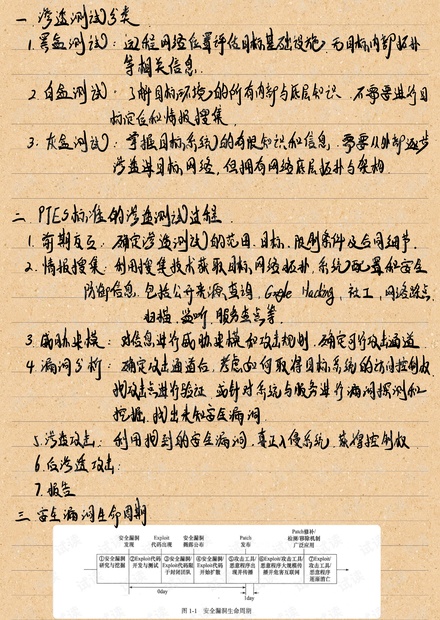 一 渗透测试分类
1. 黑盒测试：远程网络位置评估目标基础设施，无目标内部拓扑
等相关信息.
2. 白盒测试：了解目标环境的所有内部与底层知识，不需要进行目
标定位和情报搜集.
3. 灰盒测试：掌握目标系统的有限知识和信息，需要从外部逐步
渗透进目标网络，但拥有网络底层拓扑与架构.
二. PTES标准的渗透测试过程.
1. 前期交互：确定渗透测试的范围，目标，限制条件及合同细节.
2. 情报搜集：利用搜集技术获取目标网络拓扑，系统配置和安全
防御信息，包括公开来源查询，Google Hacking，社工，网络踩点，
扫描，监听，服务查点等.
3. 威胁建模：对信息进行威胁建模和攻击规划，确定可行攻击通道
4. 漏洞分析：确定攻击通道后，考虑如何取得目标系统的访问控制权
找攻击点进行验证，或针对系统与服务进行漏洞探测和
挖掘，找出未知安全漏洞.
5. 渗透攻击：利用找到的安全漏洞，真正入侵系统，获得控制权
6. 后渗透攻击：
7. 报告
三 安全漏洞生命周期
安全漏洞发现 Exploit代码出现 安全漏洞细部公布 Patch发布 Patch修补/检测/移除机制广泛应用
①安全漏洞研究与挖掘 ②Exploit代码开发与测试 ③安全漏洞/Exploit代码限于封闭团队 ④安全漏洞/Exploit代码开始扩散 ⑤攻击工具/恶意程序出现并传播 ⑥Exploit/攻击工具/恶意程序大规模传播并危害互联网 ⑦Exploit/攻击工具/恶意程序逐渐消亡
0day
1day
图 1-1 安全漏洞生命周期